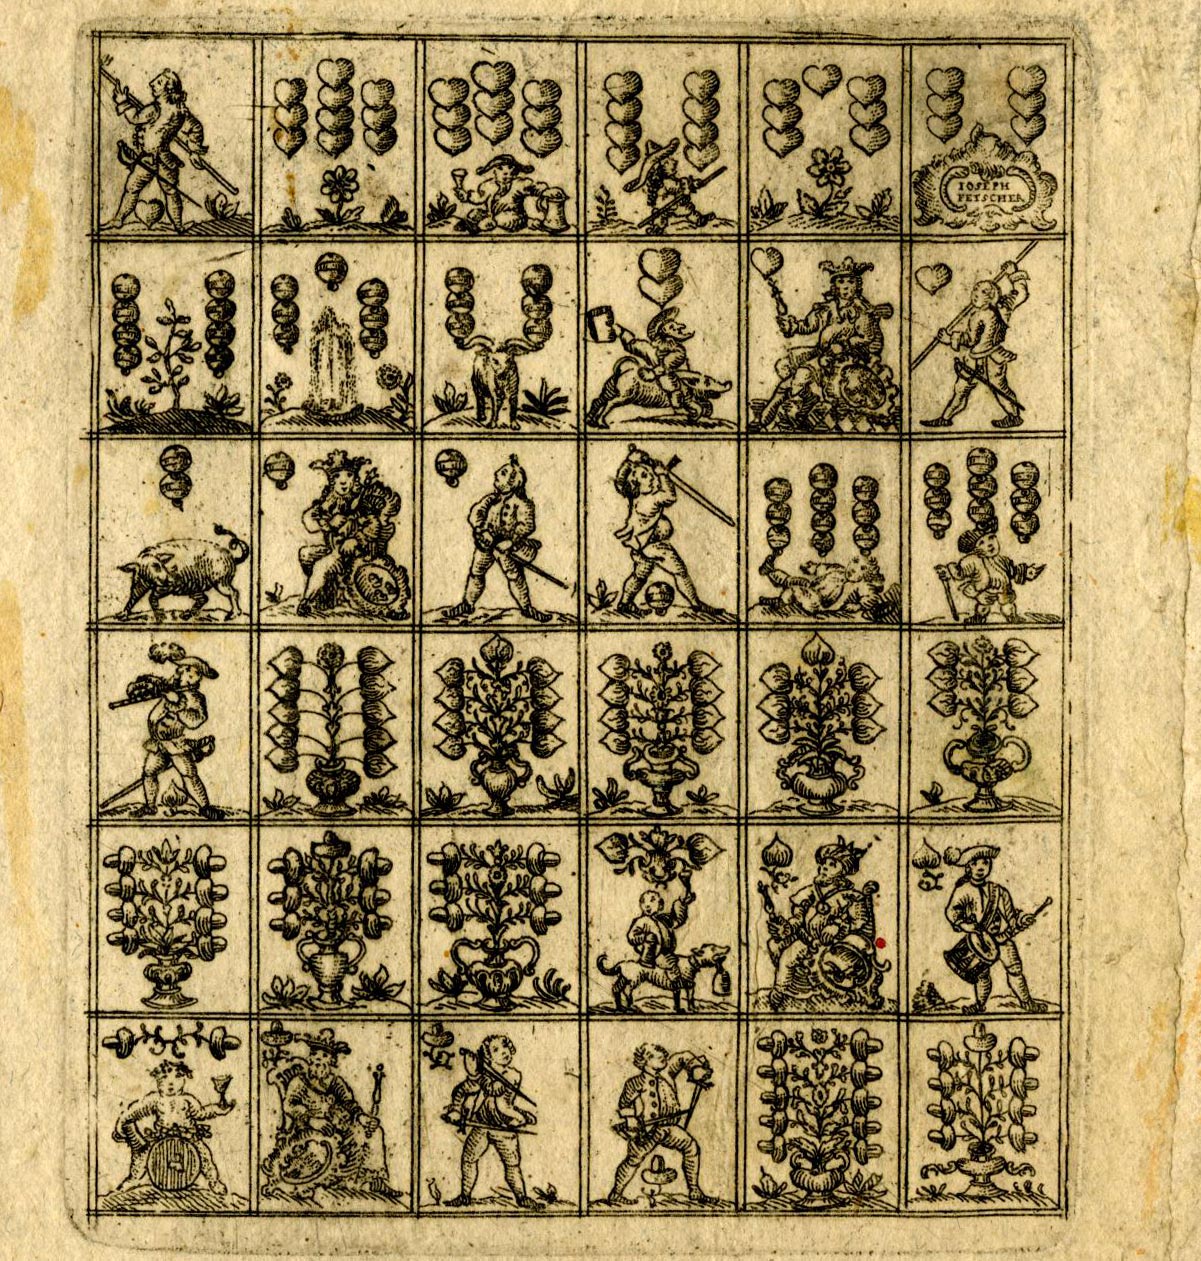 IOSEPH
FETSCHER